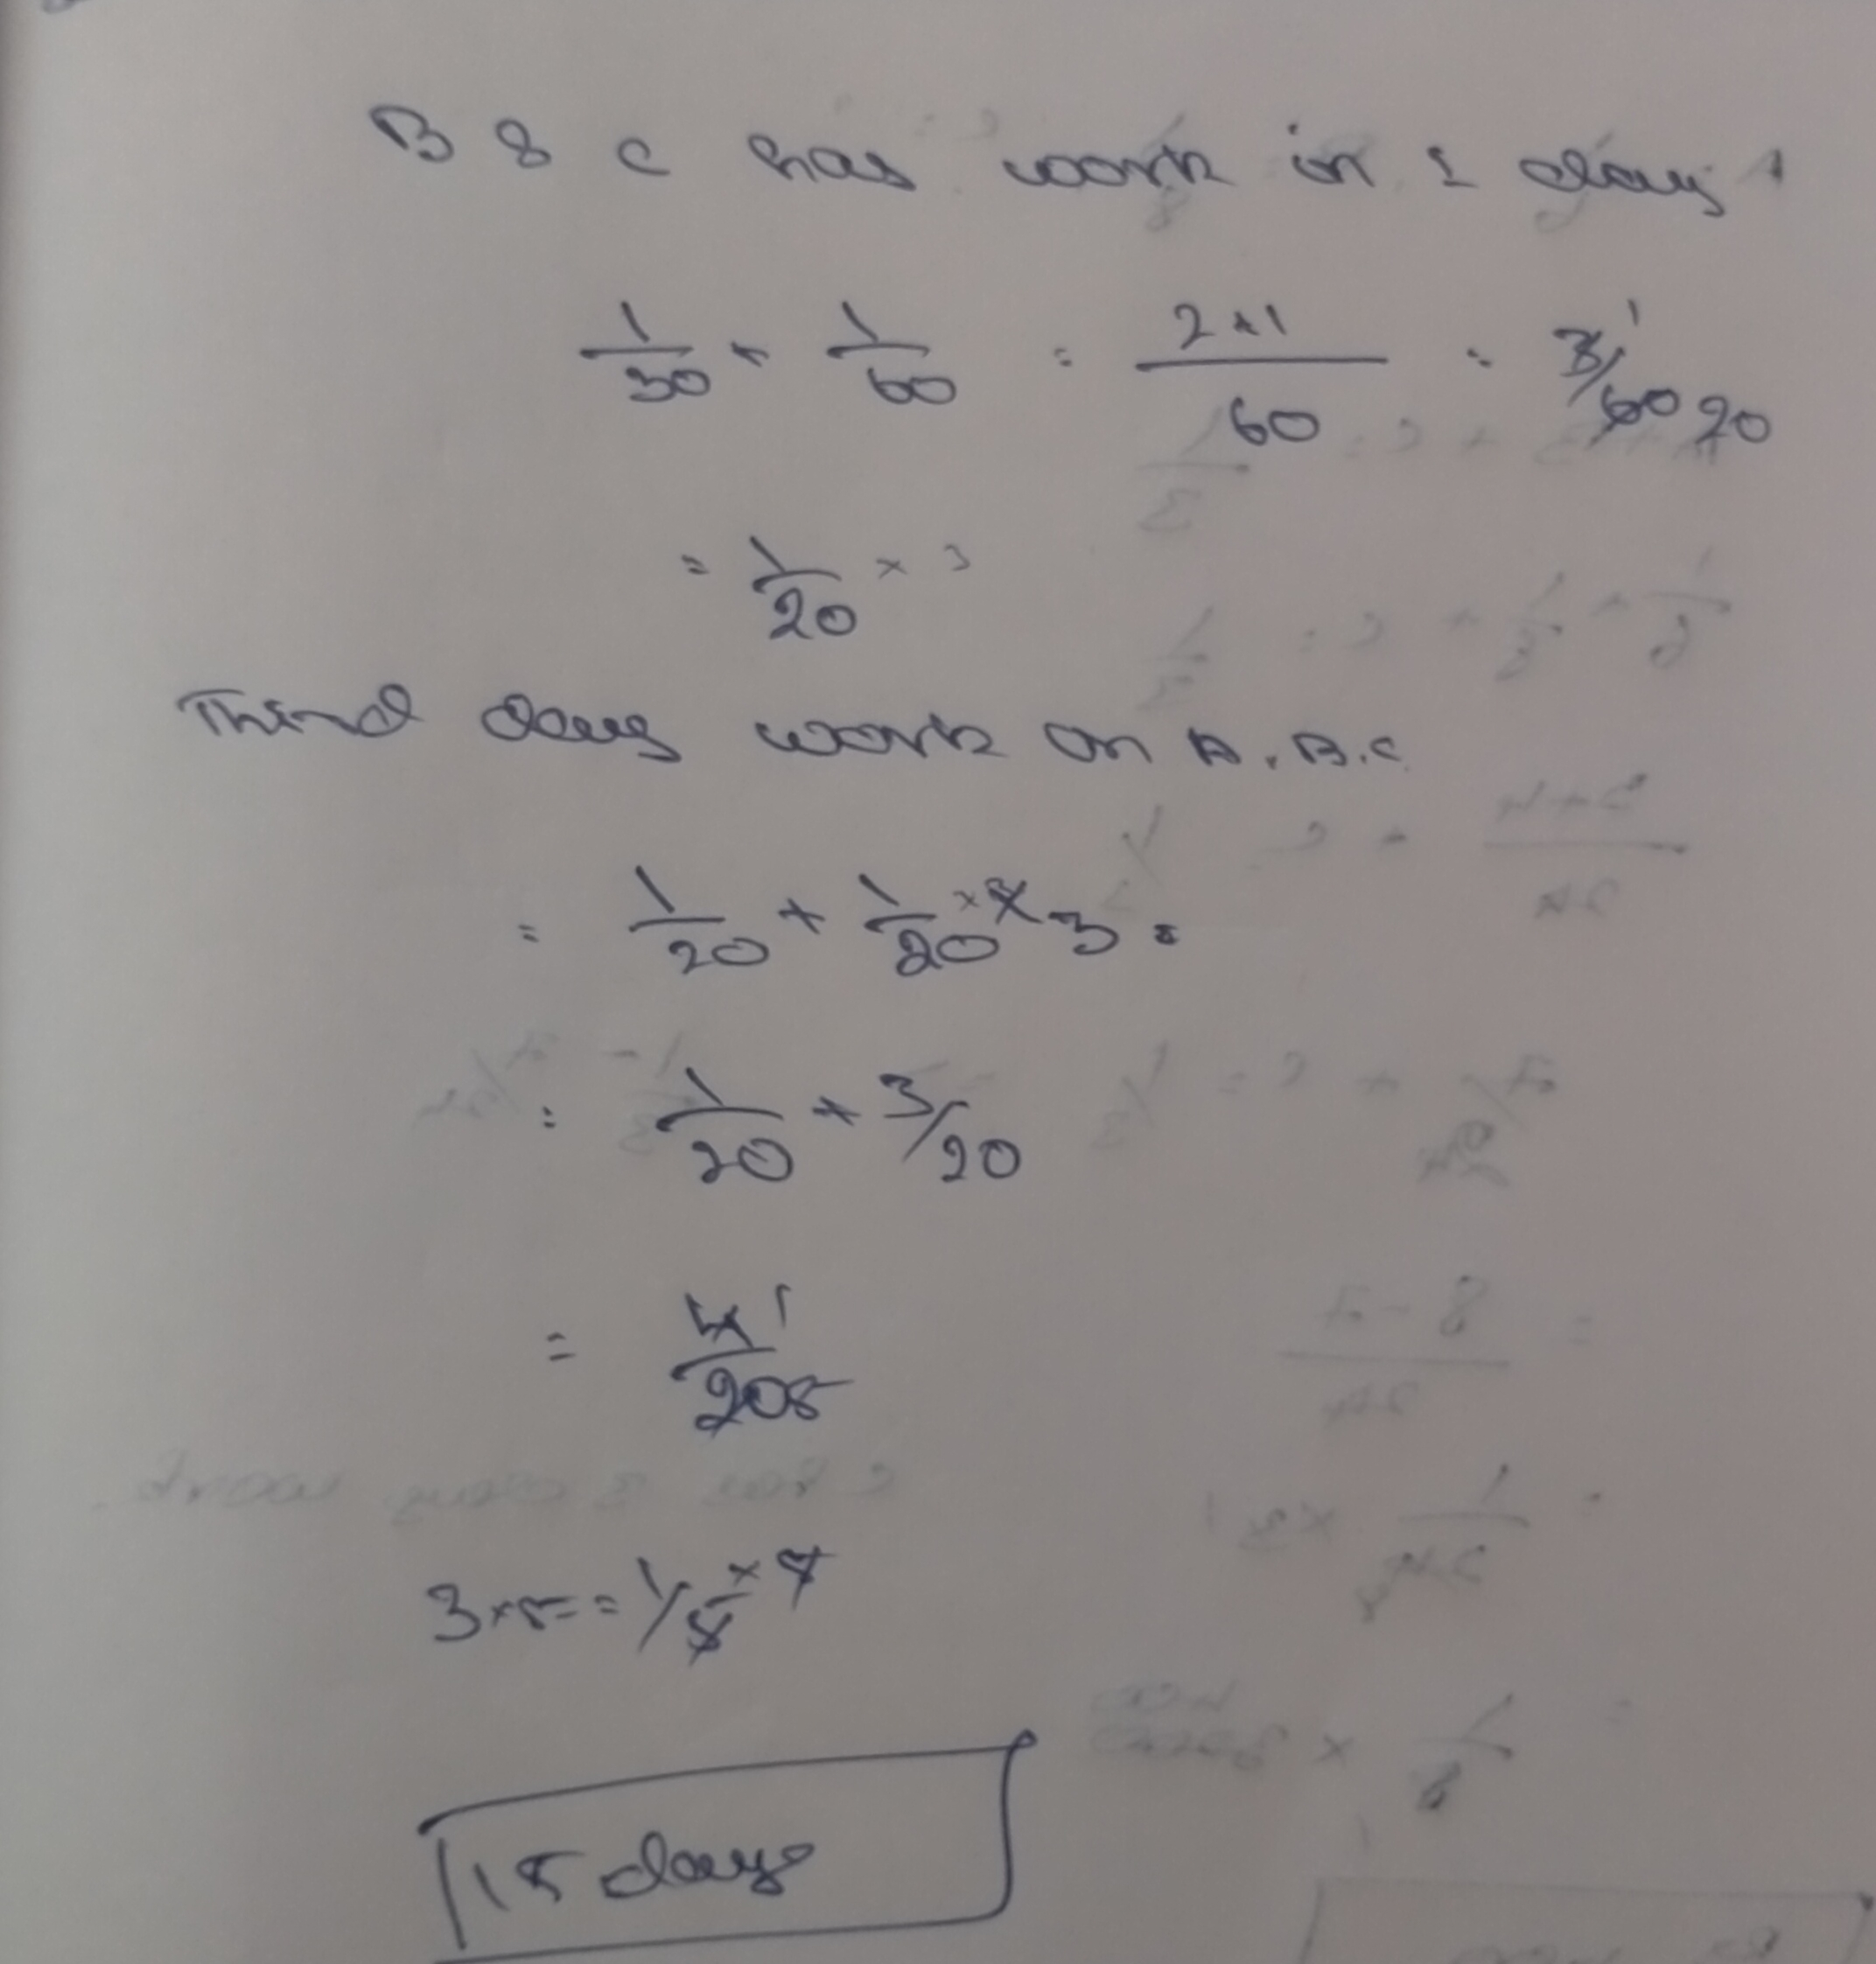 B & C has work in 1 day
1/30 + 1/60 = 2+1/60 = 3/60 1 20
= 1/20 × 3
Third day work on A, B, C
= 1/20 + 1/20 × 3 =
= 1/20 + 3/20
= 4/20 1 5
3×5 = 1/5 ×
15 days